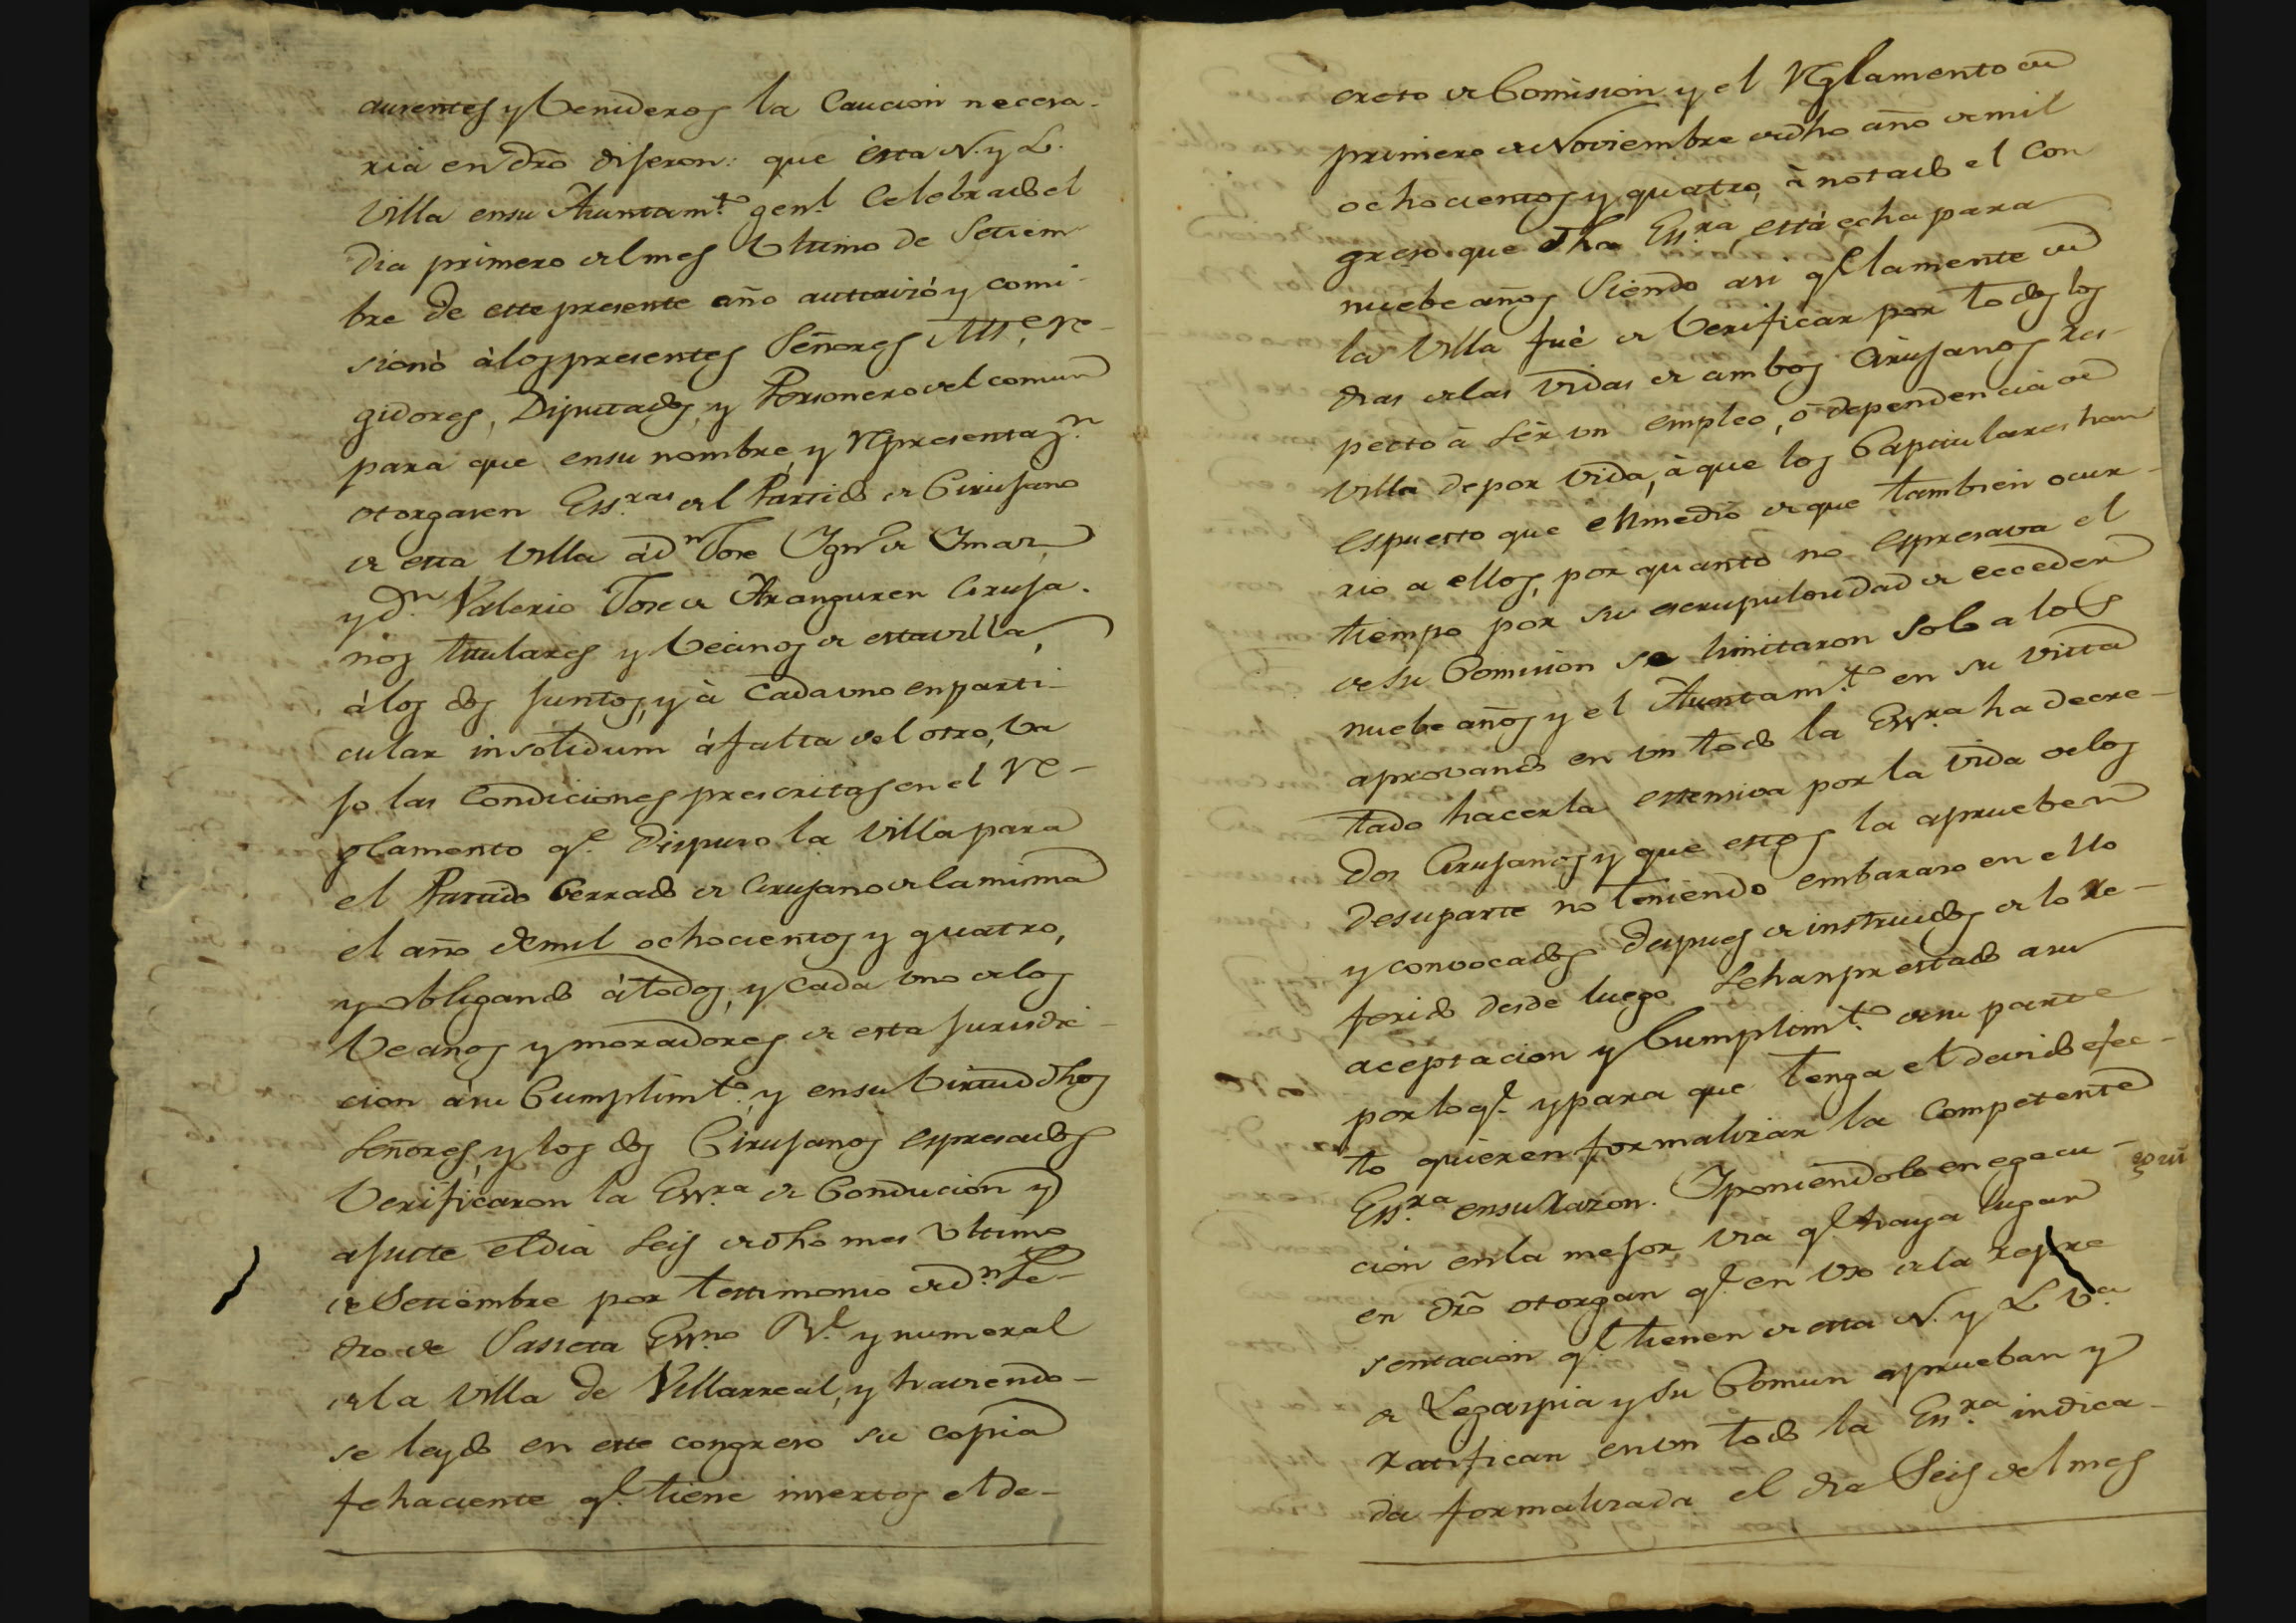 ausentes y benideros la Caucion necesa-
ria en dro dijeron: que esta N. y L.
Villa en su Ayuntam.to gen.l Celebrado el
dia primero del mes Ultimo de Setiem
bre de este presente año autorizó y comi-
sionó à los presentes Señores Alc.e, Re-
gidores, Diputados, y Personero del comun
para que en su nombre, y Representaz.n
otorgasen Ess.ras del Partido de Cirujano
de esta Villa á d.n Jose Ign.o de Imaz
y d.n Valerio Jose de Aranguren Ciruja-
nos titulares y becinos de esta villa,
á los dos juntos, y à Cada uno en parti-
cular insolidum á falta del otro, ba
jo las Condiciones prescritas en el Re-
glamento q.e dispuso la Villa para
el Partido Cerrado de Cirujano de la misma
el año de mil ochocientos y quatro,
y obligando á todos, y Cada uno de los
becinos y moradores de esta jurisdi-
cion á su Cumplim.to, y en su birtud dhos
Señores, y los dos Cirujanos espresados
Verificaron la Ess.ra de Conducion y
ajuste el dia Seis de dho mes Ultimo
de Setiembre por testimonio de d.n Pe-
dro de Sasieta Ess.no R.l y numeral
de la Villa de Villarreal, y haviendo-
se leydo en este congreso su copia
fehaciente q.e tiene insertos el de-
creto de Comision y el Reglamento de
primero de Noviembre de dho año de mil
ochocientos y quatro, à notado el Con
greso que dha Ess.ra está echa para
nuebe años Siendo asi q.e la mente de
la Villa fué de Verificar por todos los
dias de las vidas de ambos Cirujanos res-
pecto à Sér un empleo, ó dependencia de
Villa de por vida, à que los Capitulares han
espuesto que el medio de que tambien ocur-
rio a ellos, por quanto no espresava el
tiempo por su escrupulosidad de ecceder
de su Comision se limitaron Solo a los
nuebe años y el Ayuntam.to en su vista
aprovando en un todo la Ess.ra ha decre-
tado hacerla estensiva por la vida de los
dos Cirujanos y que estos la aprueben
de su parte no teniendo embarazo en ello
y convocados despues de instruidos de lo re-
ferido desde luego Se han prestado a su
aceptacion y Cumplim.to de su parte
por lo q.e y para que tenga el devido efec-
to quieren formalizar la Competente
Ess.ra en su razon. Y poniendolo en egecu-
cion en la mejor via q.e haya lugar
en dro otorgan q.e en Uso de la repre
sentacion q.e tienen de esta N. y L. V.a
de Legazpia y su Comun aprueban y
ratifican en un todo la Ess.ra indica-
da formalizada el dia Seis del mes